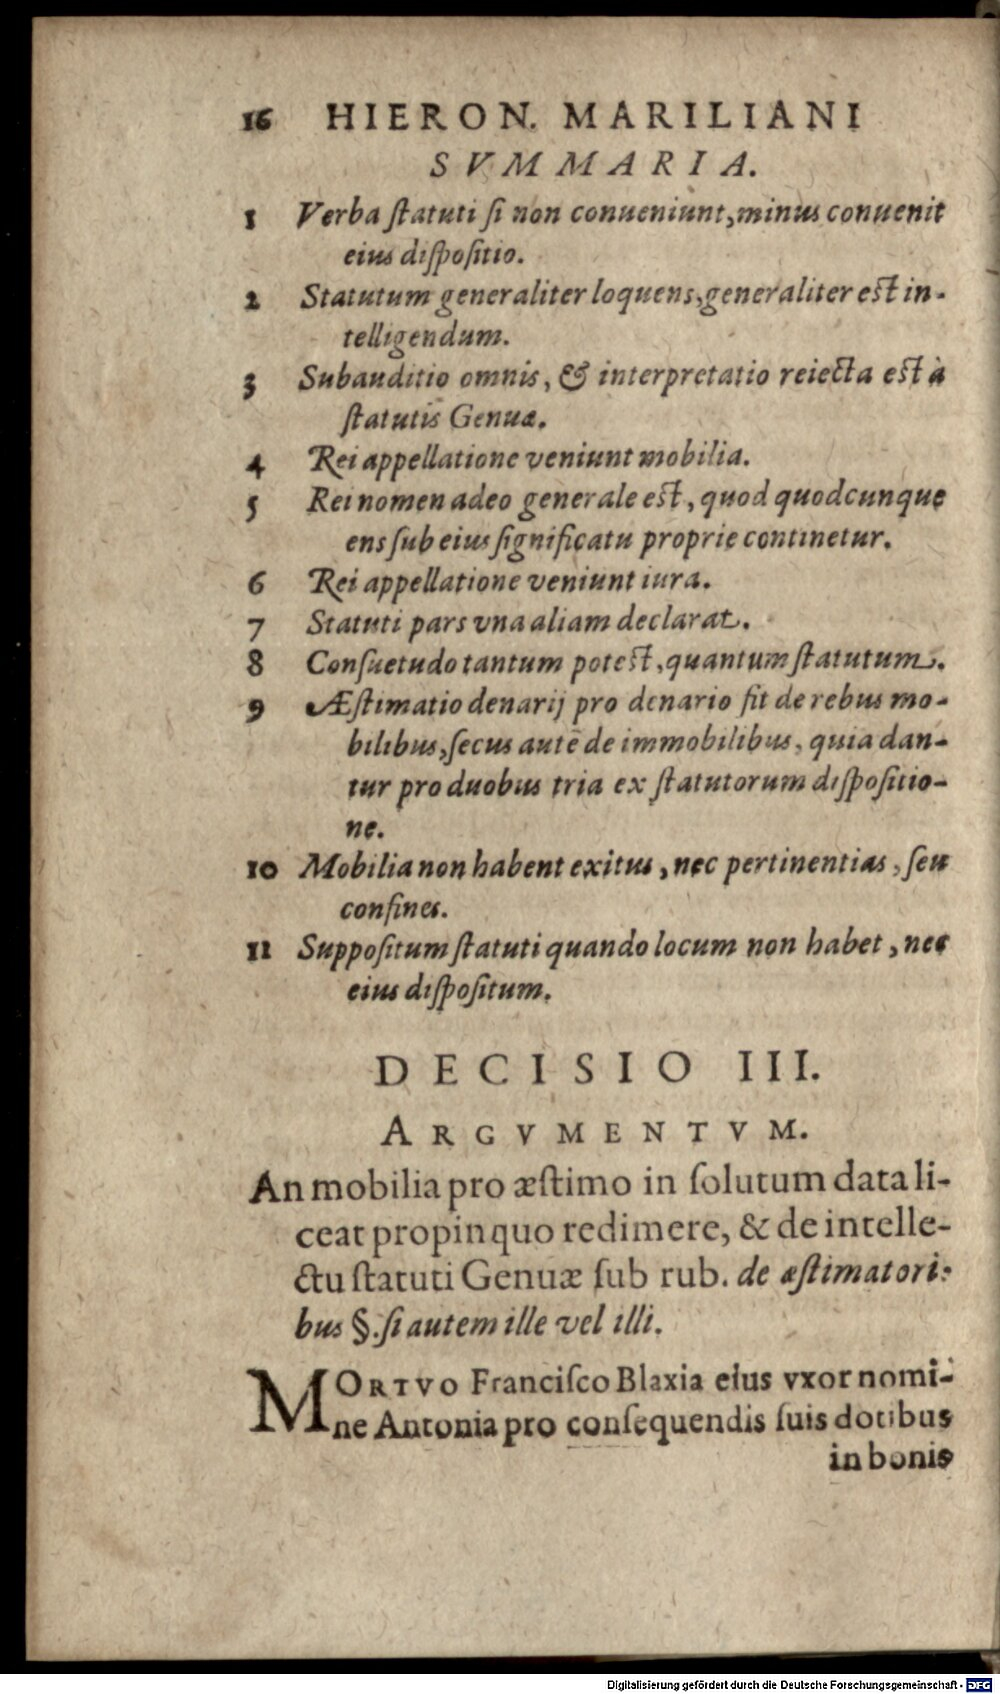 16 HIERON. MARILIANI
SVMMARIA.
1 Verba ſtatuti ſi non conueniunt, minus conuenit
eius diſpoſitio.
2 Statutum generaliter loquens, generaliter eſt in-
telligendum.
3 Subauditio omnis, & interpretatio reiecta eſt à
ſtatutis Genuæ.
4 Rei appellatione veniunt mobilia.
5 Rei nomen adeo generale eſt, quod quodcunque
ens ſub eius ſignificatu proprie continetur.
6 Rei appellatione veniunt iura.
7 Statuti pars vna aliam declarat.
8 Conſuetudo tantum poteſt, quantum ſtatutum.
9 Æſtimatio denarij pro denario fit de rebus mo-
bilibus, ſecus autē de immobilibus, quia dan-
tur pro duobus tria ex ſtatutorum diſpoſitio-
ne.
10 Mobilia non habent exitus, nec pertinentias, ſeu
confines.
11 Suppoſitum ſtatuti quando locum non habet, nec
eius diſpoſitum.
DECISIO III.
ARGVMENTVM.
An mobilia pro æſtimo in ſolutum data li-
ceat propinquo redimere, & de intelle-
ctu ſtatuti Genuæ ſub rub. de æſtimatori-
bus §. ſi autem ille vel illi.
MORTVO Franciſco Blaxia eius vxor nomi-
ne Antonia pro conſequendis ſuis dotibus
in bonis
Digitalisierung gefördert durch die Deutsche Forschungsgemeinschaft - DFG